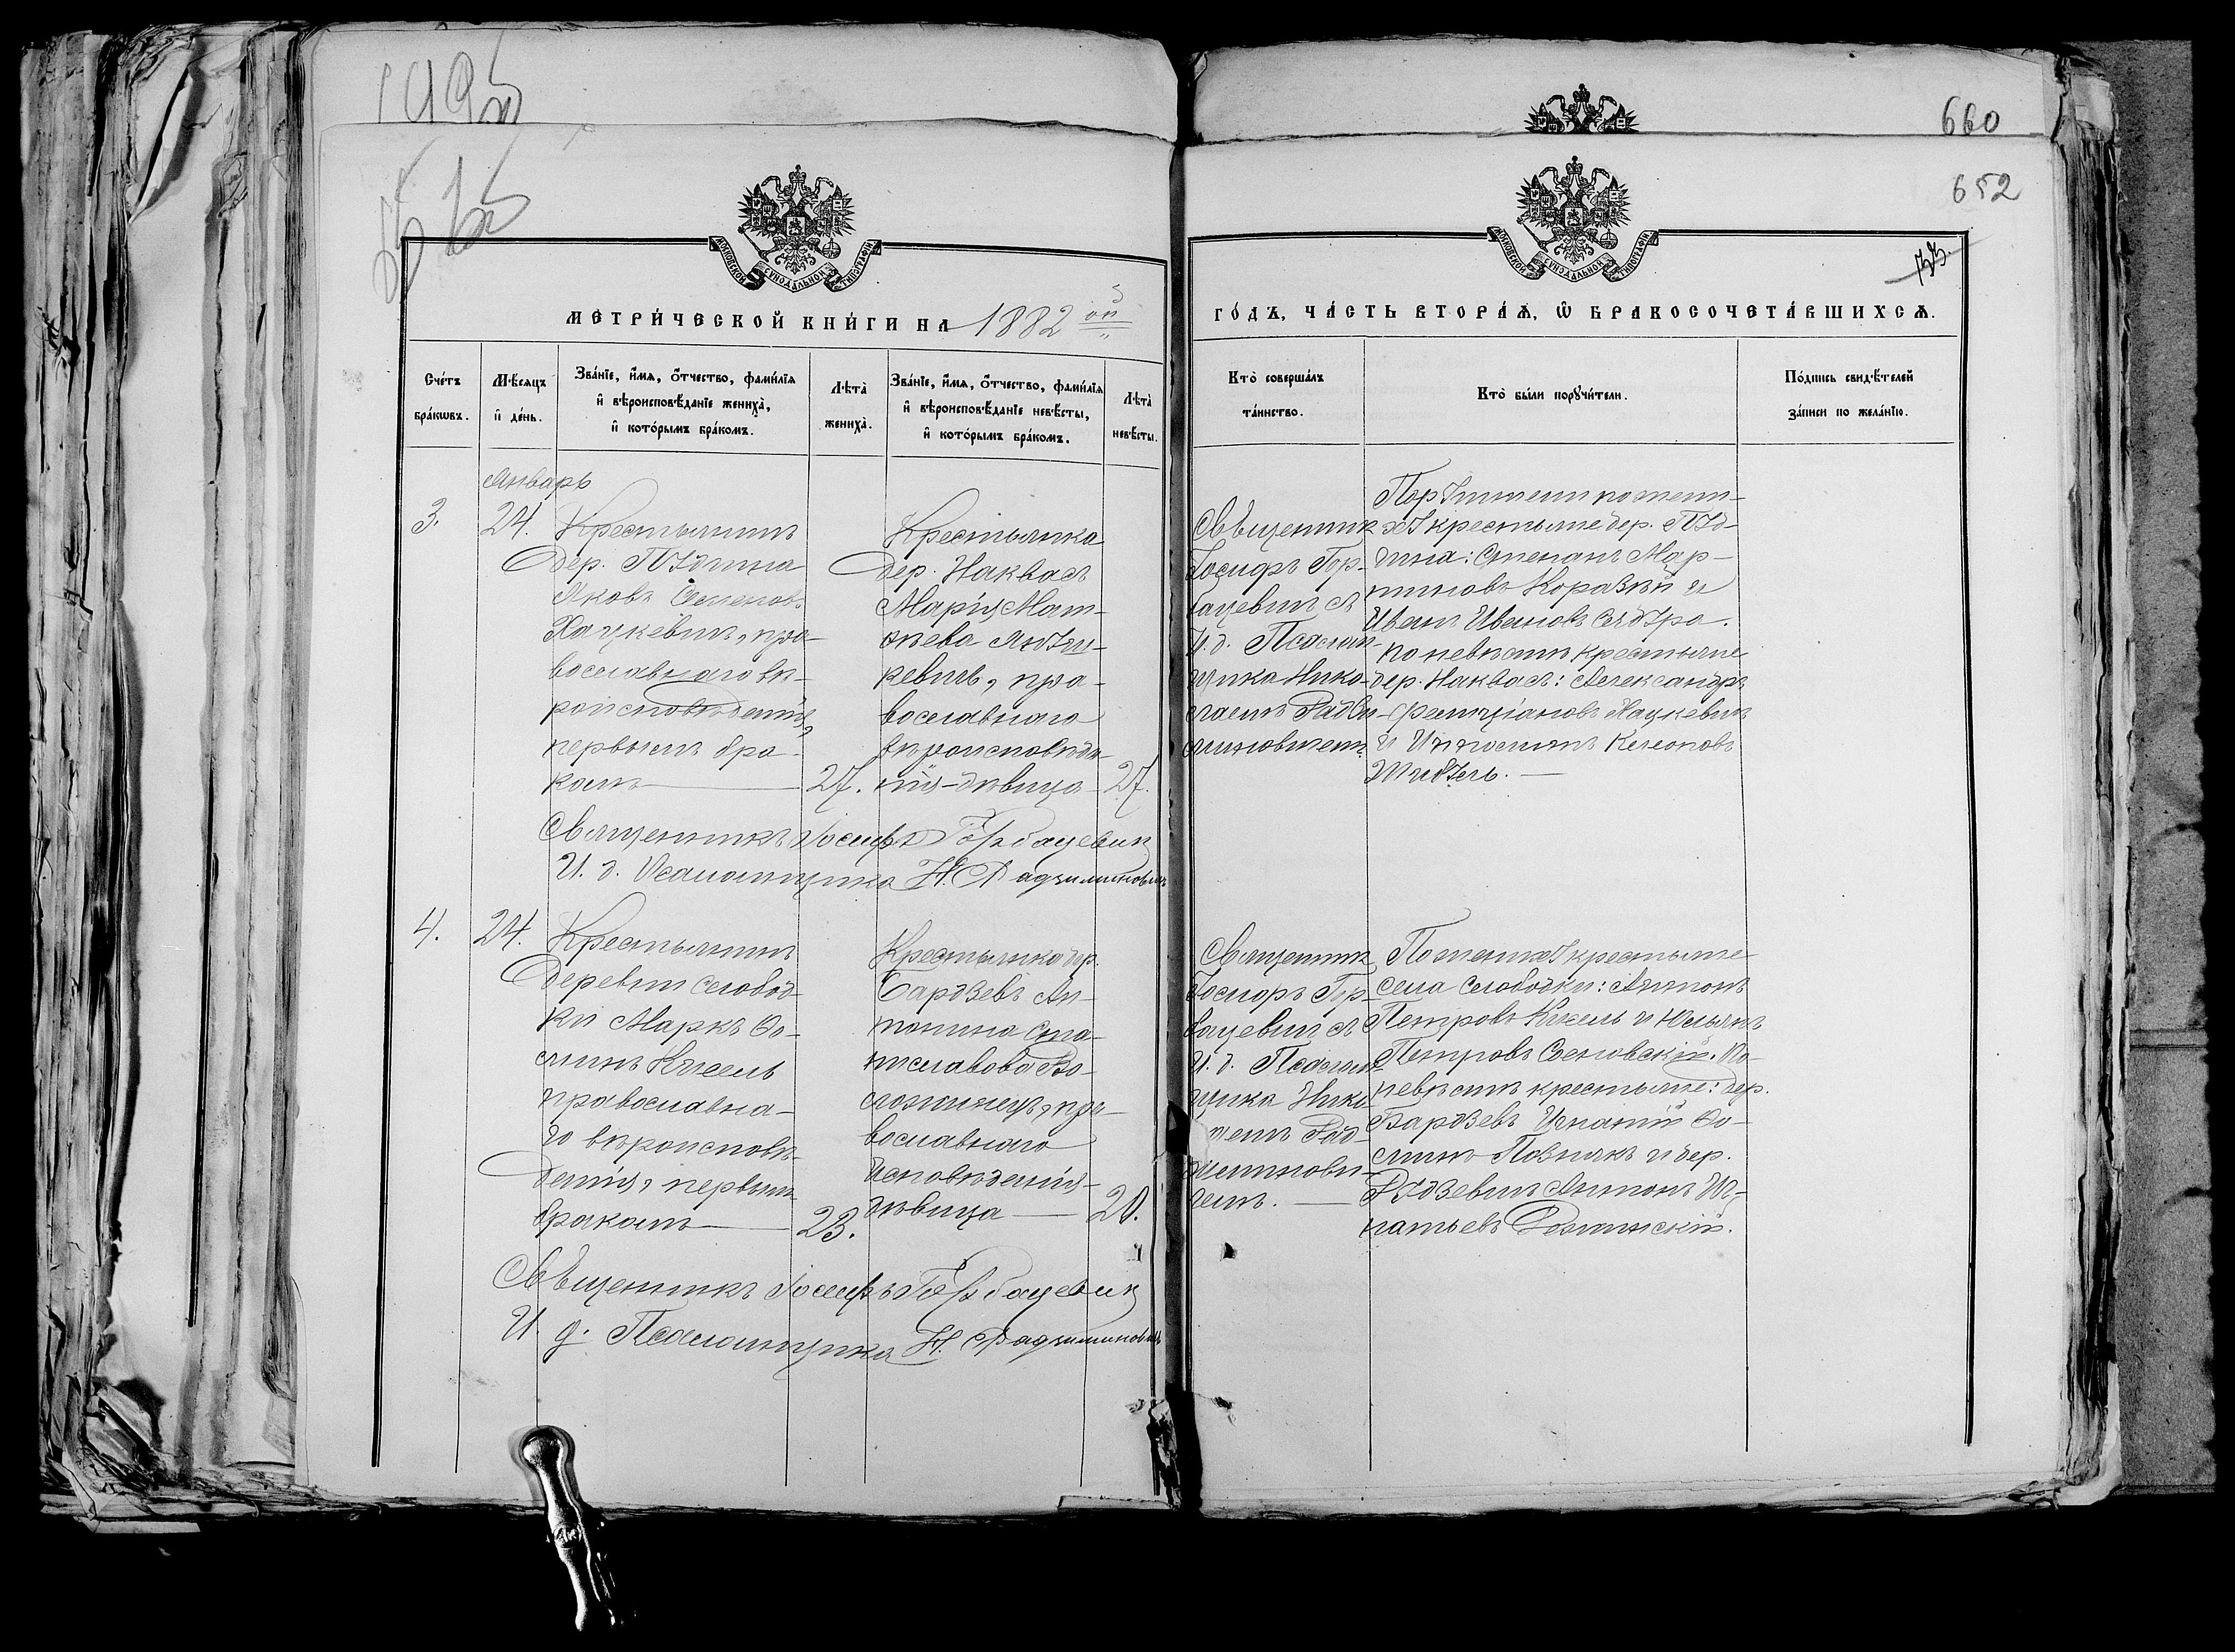 660
652
МОСКОВСКОЙ СѴНОДАЛЬНОЙ ТИПОГРАФІИ
МОСКОВСКОЙ СѴНОДАЛЬНОЙ ТИПОГРАФІИ
МЕТРИ́ЧЕСКОЙ КНИ́ГИ НА 1882 ой
ГО́ДЪ, ЧА́СТЬ ВТОРА́Ѧ, Ѡ҆ БРАКОСОЧЕТА́ВШИХСѦ.
Сче́тъ бра́кѡвъ.
Мѣ́сяцъ и҆ де́нь.
Зва́нїе, и҆́мѧ, ѻ҆́тчество, фами́лїѧ
и҆ вѣроисповѣ́данїе жениха̀,
и҆ кото́рымъ бра́комъ.
Лѣта̀ жениха̀.
Зва́нїе, и҆́мѧ, ѻ҆́тчество, фами́лїѧ
и҆ вѣроисповѣ́данїе невѣ́сты,
и҆ кото́рымъ бра́комъ.
Лѣта̀ невѣ́сты.
Кто̀ соверша́лъ та́инство.
Кто̀ бы́ли порꙋчи́тели.
По́дпись свидѣ́телей за́писи по жела́нїю.
Январь
3.
24.
Крестьянинъ
дер. Пудина
Яковъ Семеновъ
Хацкевичъ, пра-
вославнаго вѣ-
роисповѣданія,
первымъ бра-
комъ
27.
Крестьянка
дер. Наквасъ
Марія Мат-
ѳѣева
ревичъ, пра-
вославнаго
вѣроисповѣда-
нія-дѣвица
27.
Священникъ
Іосифъ Гор-
бацевичъ съ
И. д. Псалом-
щика Нико-
лаемъ Радзи-
миновичемъ.
Поручители по жени-
ху крестьяне дер. Пу-
дина: Степанъ Мар-
тиновъ и
Иванъ Ивановъ
по невѣстѣ крестьяне
дер. Наквасъ: Александръ
Хацкевичъ
и
Священникъ Іосифъ Горбацевичъ
И. д. Псаломщика Н. Радзиминовичъ
4.
24.
Крестьянинъ
деревни Слобод-
ки Маркъ Ѳо-
минъ Кисель
православна-
го вѣроисповѣ-
данія, первымъ
бракомъ
23.
Крестьянка дер.
Бардзевъ Ан-
тонина Ста-
ниславова Во-
ложинецъ, пра-
вославнаго
исповѣданія-
дѣвица
20.
Священникъ
Іосифъ Гор-
бацевичъ съ
И. д. Псалом-
щика Нико-
Рад-
зиминови-
чемъ.
По жениху крестьяне
села Слободки: Антонъ
Петровъ Кисель и Юльянъ
Петровъ По
невѣстѣ крестьяне: дер.
Бардзевъ Игнатій Ѳо-
минъ Познякъ и дер.
Антонъ Иг-
натьевъ
Священникъ Іосифъ Горбацевичъ
И. д. Псаломщика Н. Радзиминовичъ